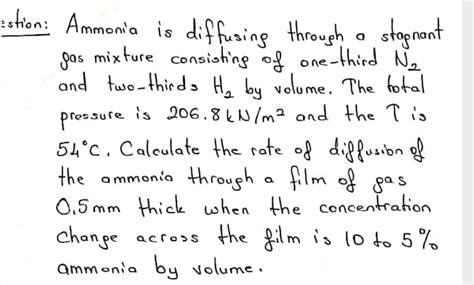 estion: Ammonia is diffusing through a stagnant
gas mixture consisting of one-third N₂
and two-thirds H₂ by volume. The total
pressure is 206.8 kN/m² and the T is
54°C. Calculate the rate of diffusion of
the ammonia through a film of gas
0,5 mm thick when the concentration
change across the film is 10 to 5%
ammonia by volume.